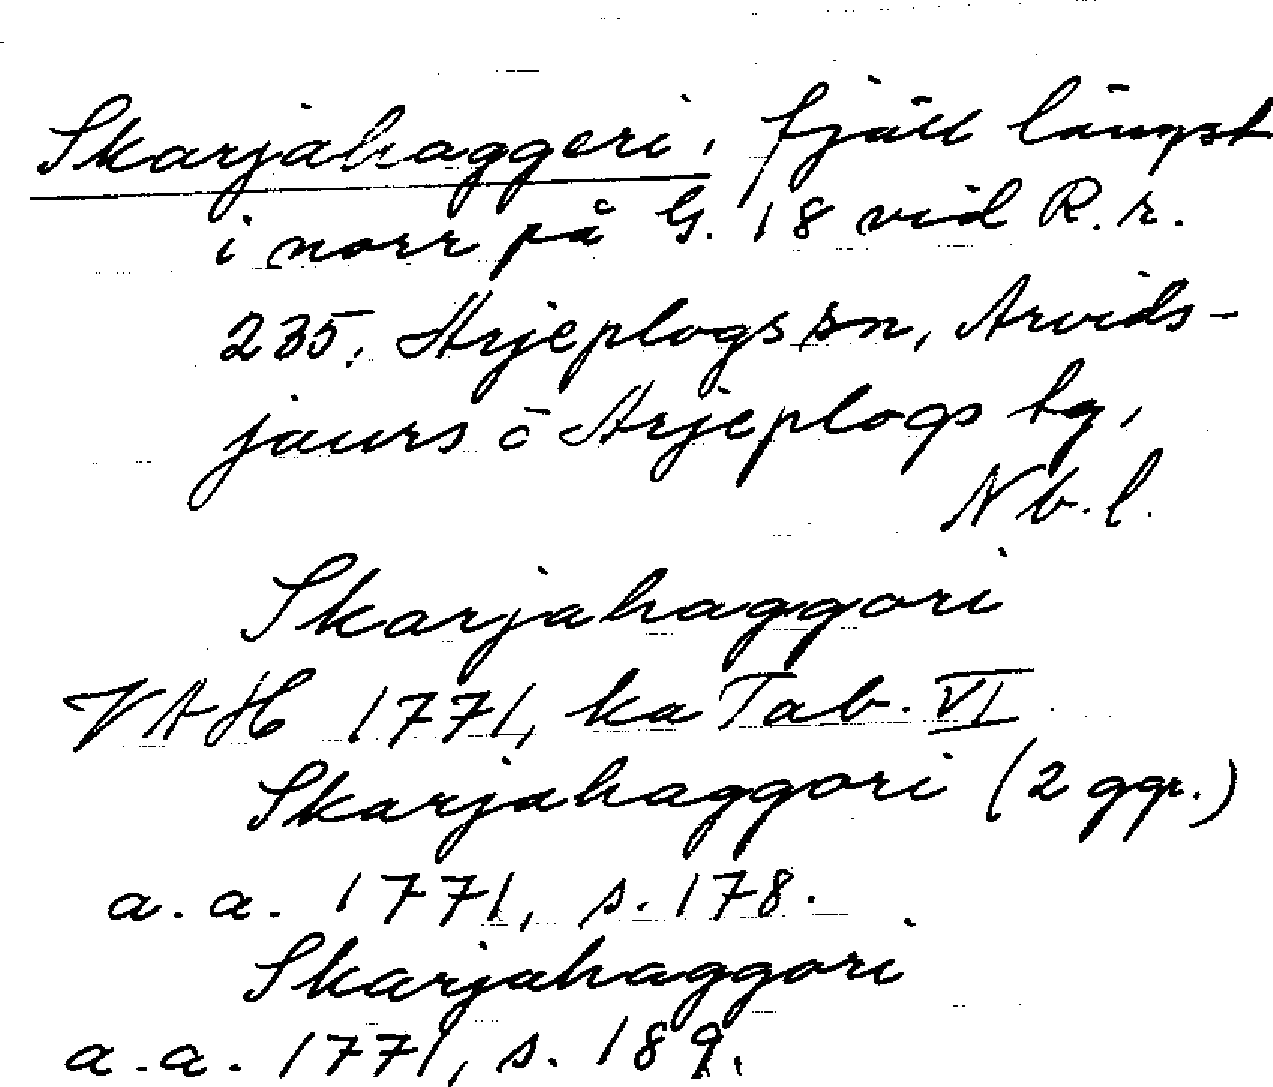 Skarjahaggeri, fjäll längst
i norr på G. 18 vid R.r.
235, Arjeplogs sn, Arvids-
jaurs o Arjeplogs tg,
Nb.l.
Skarjahaggori
VAH 1771, ka Tab. VI
Skarjahaggori (2 ggr.)
a.a. 1771, s. 178.
Skarjahaggori
a.a. 1771, s. 189.